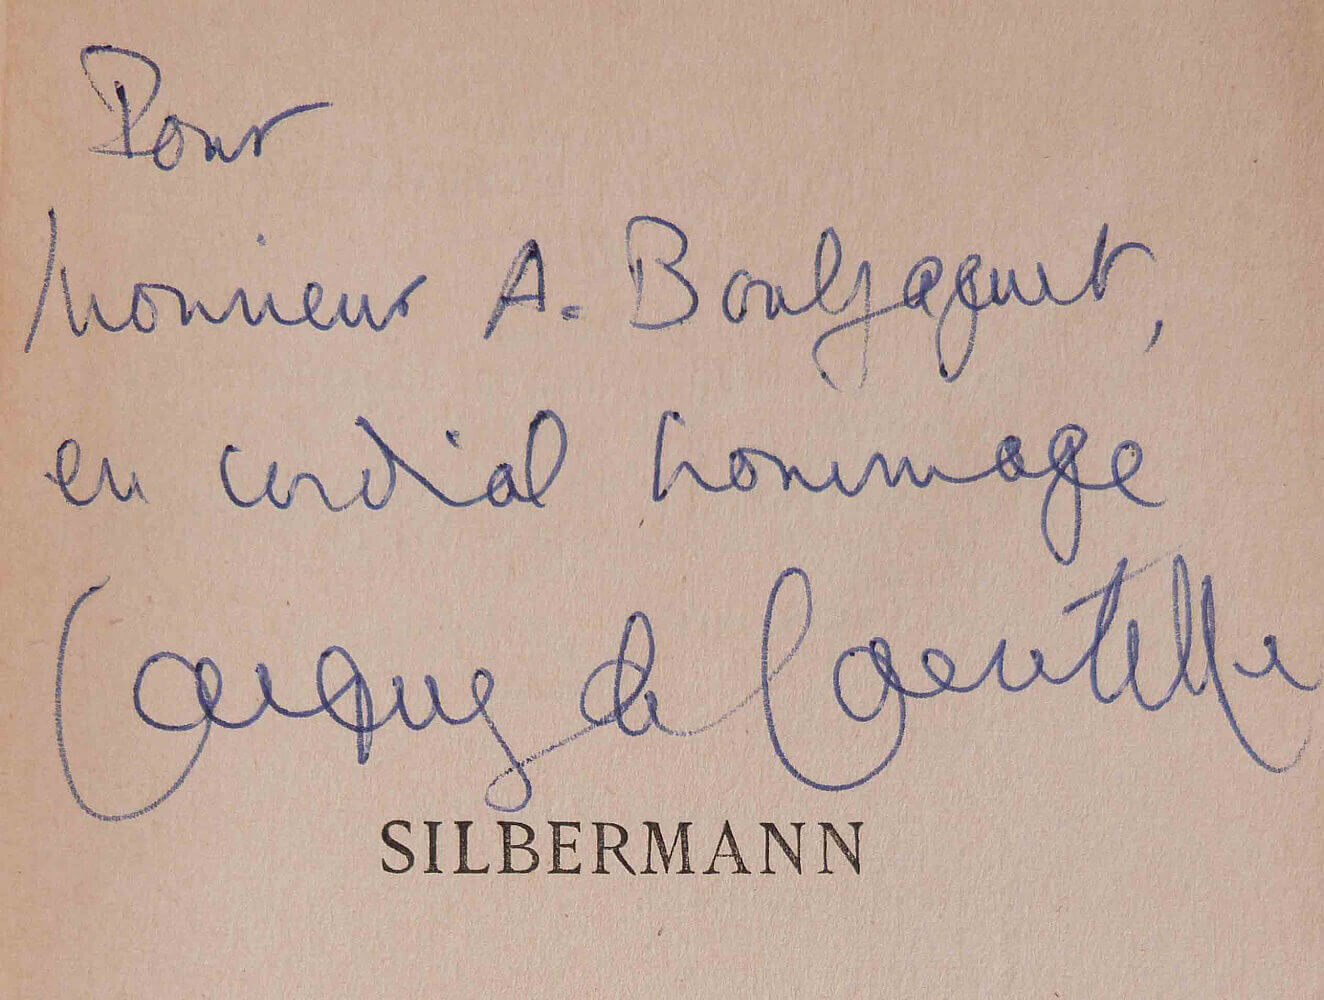 Pour
Monsieur A. Bouljaquet,
en cordial hommage
Jacques de Lacretelle
SILBERMANN